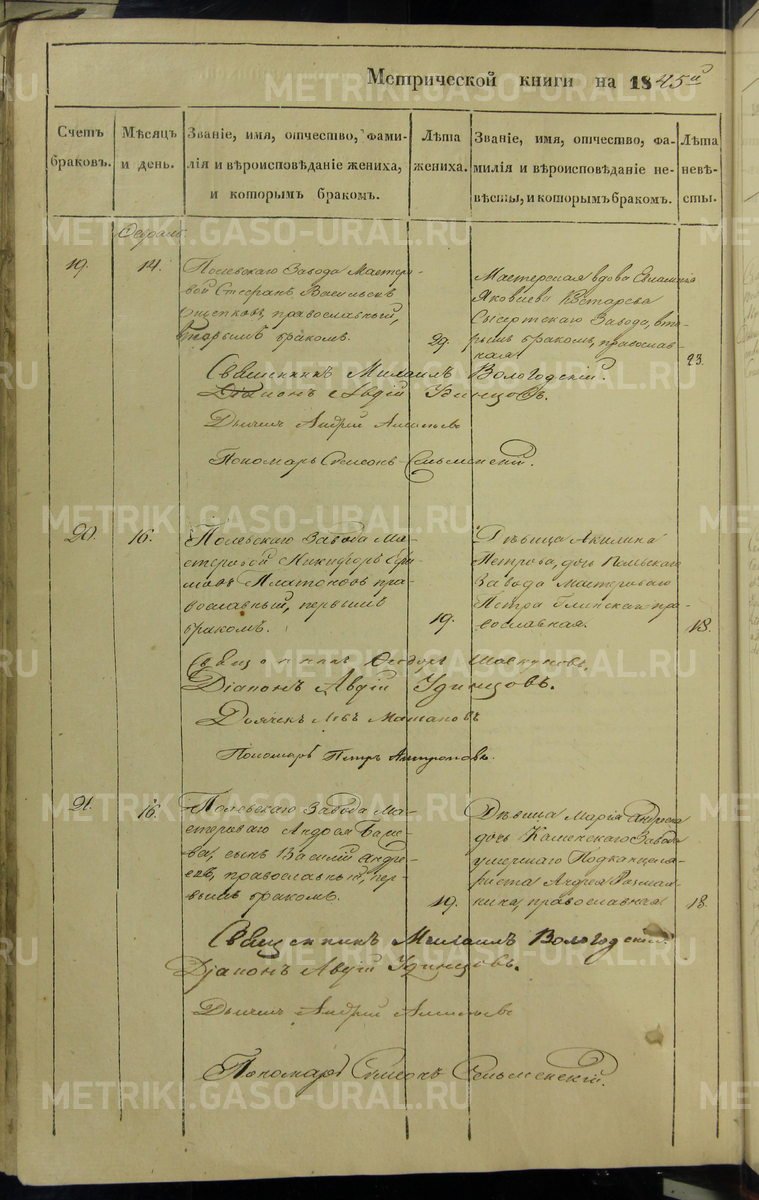 Метрической книги на 1845й
Счетъ браковъ.
Мѣсяцъ и день.
Званіе, имя, отчество, фами-
лія и вѣроисповѣданіе жениха,
и которымъ бракомъ.
Лѣта жениха.
Званіе, имя, отчество, фа-
милія и вѣроисповѣданіе не-
вѣсты, и которымъ бракомъ.
Лѣта невѣ-
сты.
19.
14.
Полевскаго Завода Мастеро-
вой Стефанъ Васильевъ
православный,
вторымъ бракомъ.
29.
Мастерская вдова
Яковлева
Сысертскаго Завода, вто-
рымъ бракомъ, православ-
ная
23.
Священникъ Михаилъ Вологодскій.
Діаконъ Авдій Удинцовъ.
Дьячекъ Андрей
Пономарь Симеонъ Сельменскій.
20.
16.
Полевскаго Завода Ма-
стеровой Никифоръ
Платоновъ пра-
вославный, первымъ
бракомъ.
19.
Дѣвица Акилина
Петрова, дочь Полевскаго
Завода Мастероваго
Петра пра-
вославная.
18.
Священникъ Феодоръ
Діаконъ Авдій Удинцовъ.
Дьячекъ Левъ
Пономарь Петръ Антроповъ.
21.
16.
Полевскаго Завода Ма-
стероваго Андрея
сынъ Василій Андре-
евъ, православный, пер-
вымъ бракомъ.
19.
Дѣвица Марія Андреева
дочь Каменскаго Завода
умершаго Подканцеля-
риста Андрея
православная
18.
Священникъ Михаилъ Вологодскій.
Діаконъ Авдій Удинцовъ.
Дьячекъ Андрей
Пономарь Симеонъ Сельменскій.
METRIKI.GASO-URAL.RU